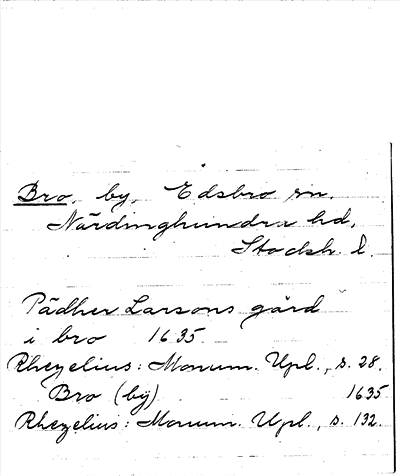 Bro, by, Edsbro sn.
Närdinghundra hd,
Stocksh. l.
Pädher Larsons gård
i bro 1635.
Rhezelius: Monum. Upl., s. 28.
Bro (bÿ) 1635
Rhezelius: Monum. Upl., s. 132.